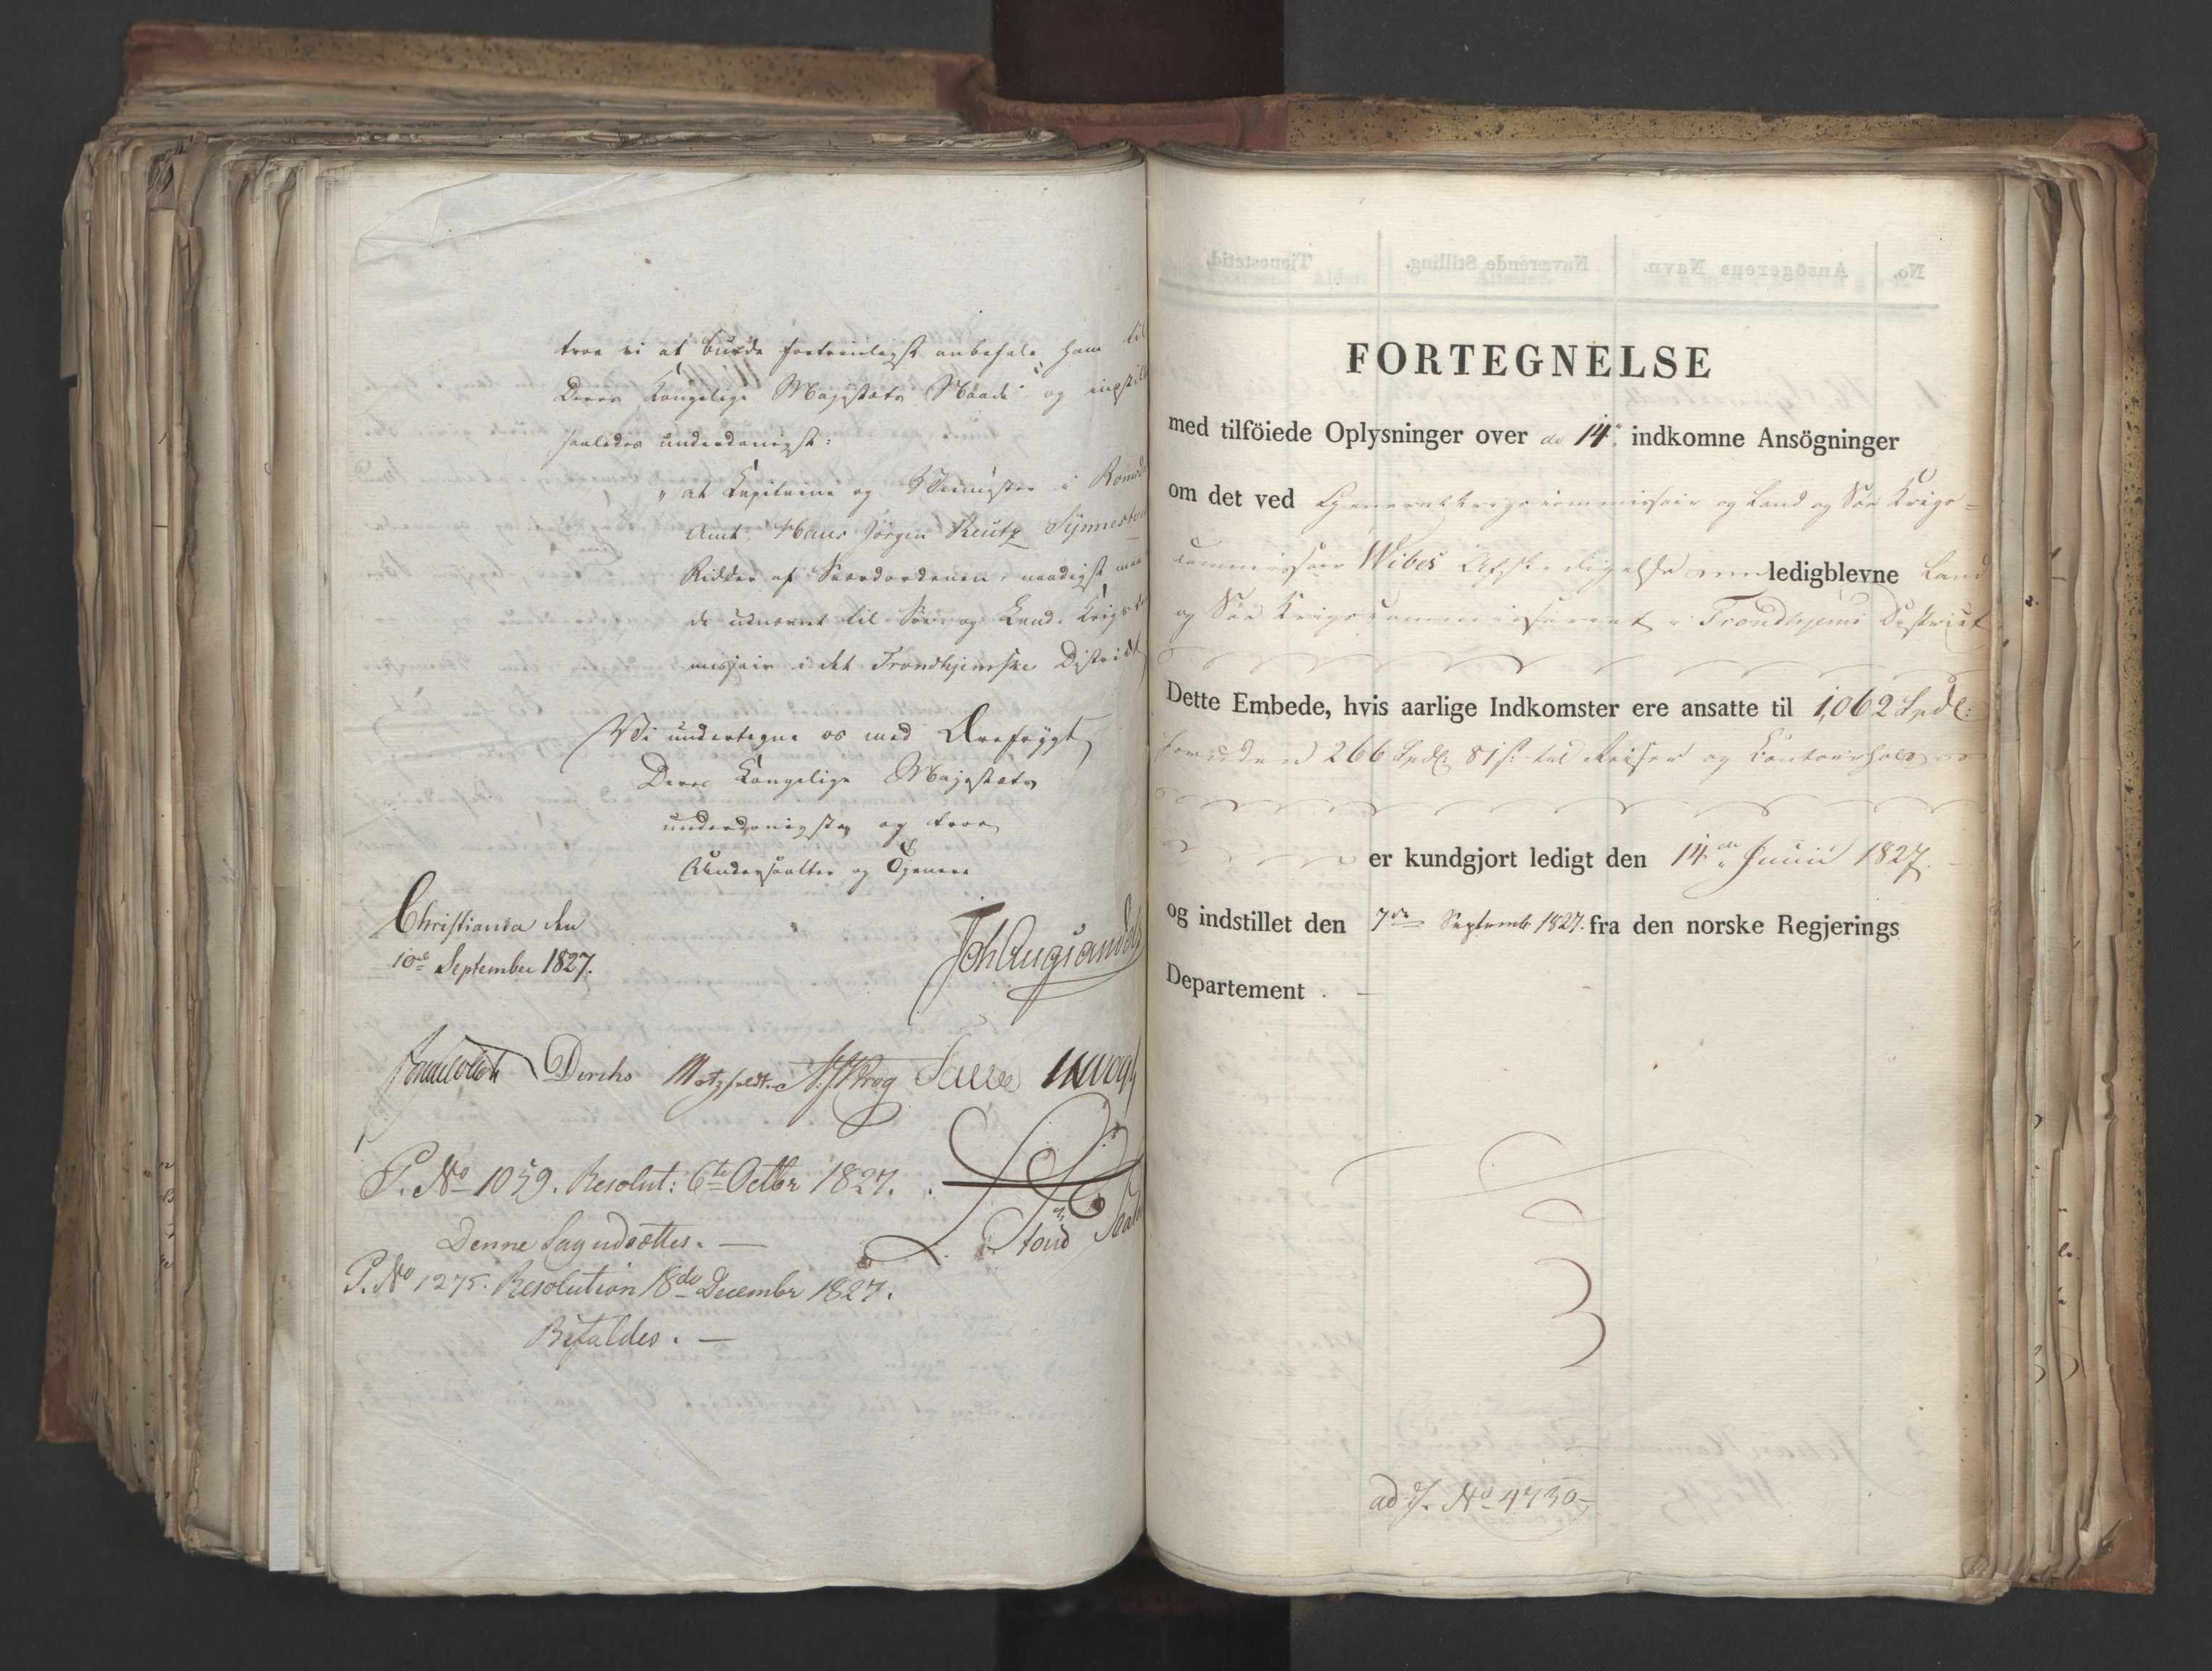 troe vi at burde fortrinligst anbefale ham til
Deres Kongelige Majestæts Naade og indstille
saaledes underdanigst:
"at Capitaine og Veimester i Romsda
Amt Hans Jørgen Reutz Synnestve
Ridder af Sværdordenen, naadigst maa
de udnævnt til Søe- og Land-Krigscom
missair i det Trondhjemske District
Vi undertegne os med Ærefrygt
Deres Kongelige Majestæts
underdanigste og troe
Undersaatter og Tjenere
Christiania den
10de September 1827.
Joh Aug Sandels
Diriks Motzfeldt. Krog
P. No 1059. Resolut: 6te Octbr 1827.
Denne Sag udsættes. —
P. No 1275. Resolution 18de Decembr 1827.
Bifaldes. —
FORTEGNELSE
med tilföiede Oplysninger over de 14 indkomne Ansögninger
om det ved Generalkrigscommissair og Land og Søe Krigs-
commissair Wibes Afskedigelse ledigblevne Land
og Søe Krigscommissariat i Trondhjems District
Dette Embede, hvis aarlige Indkomster ere ansatte til 1,062 Spdl:
foruden 266 Spdl. 81 s. til Reiser og Contoirhold
er kundgjort ledigt den 14de Junii 1827.
og indstillet den 7de Septembr 1827. fra den norske Regjerings
Departement . —
ad J. No 4730